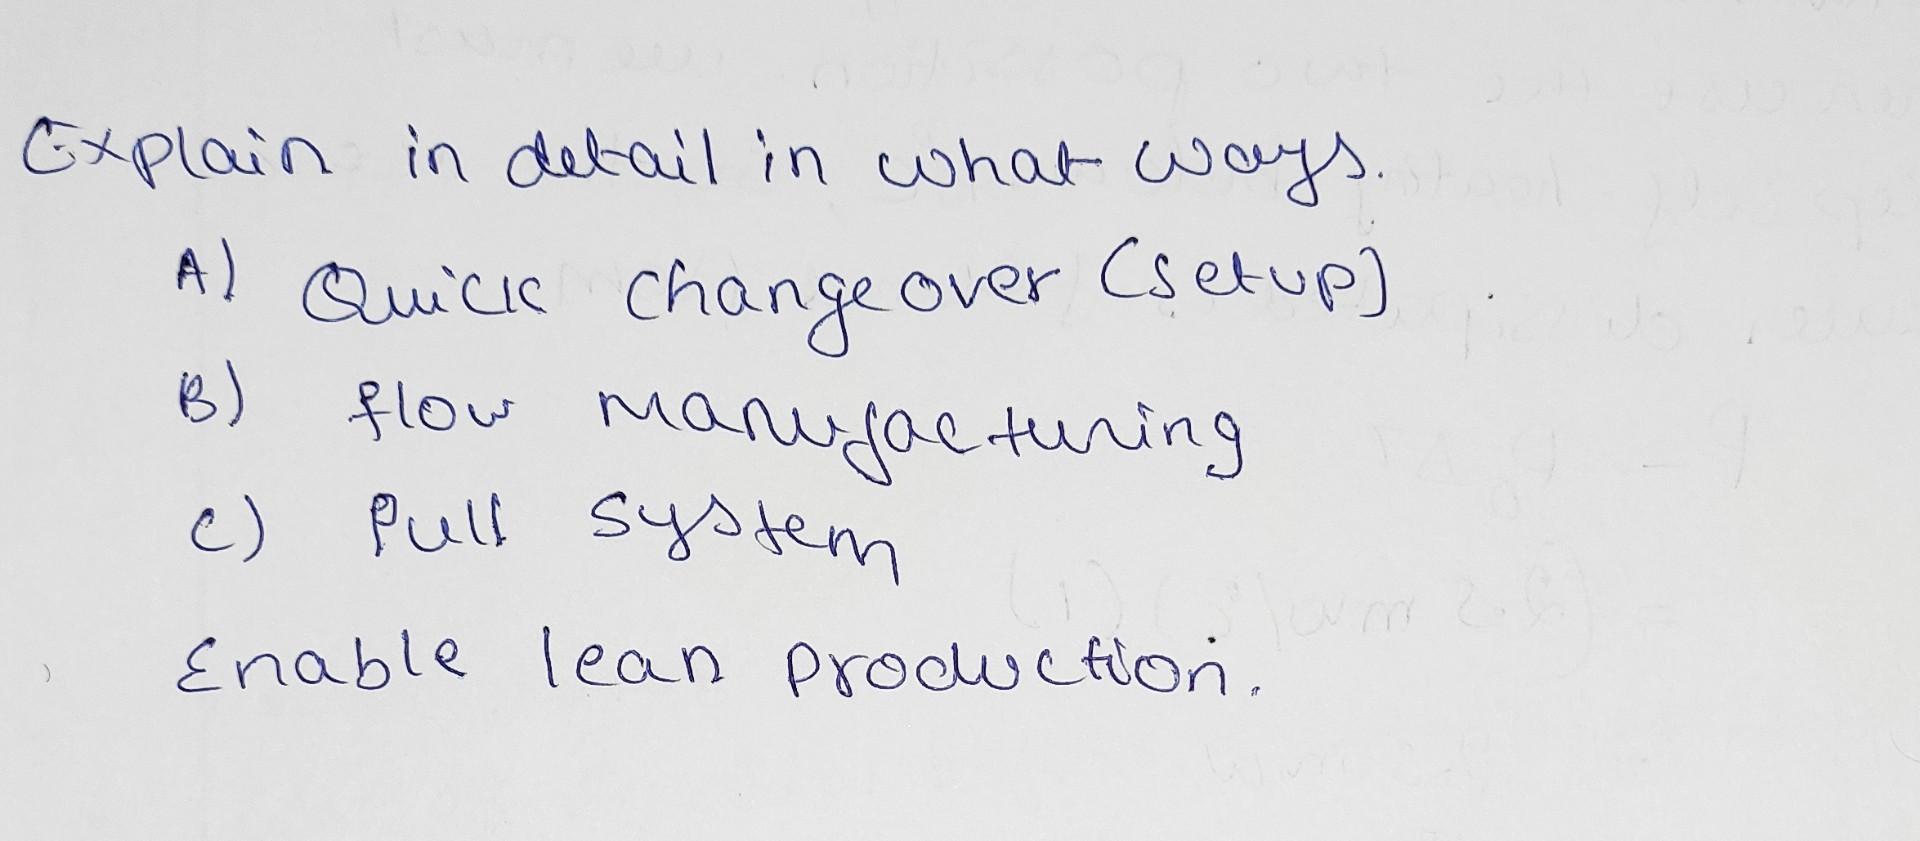 Explain in detail in what ways.
A) Quick changeover (setup)
B) flow manufacturing
C) Pull system
Enable lean production.